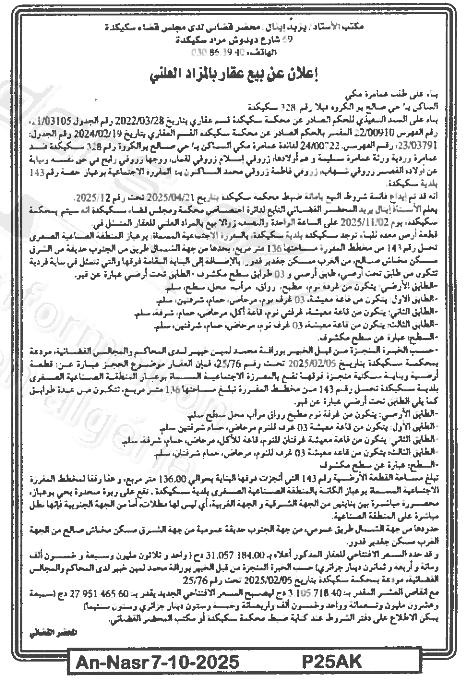 مكتب الأستاذ/ يزيد إينال/ محضر قضائي لدى مجلس قضاء سكيكدة
69 شارع ديدوش مراد سكيكدة
الهاتف: 030 86 39 40
إعلان عن بيع عقار بالمزاد العلني
بناء على طلب عمامرة مكي
الساكن بـ/ حي صالح بو الكروة فيلا رقم 328 سكيكدة
بناء على السند التنفيذي للحكم الصادر عن محكمة سكيكدة قسم عقاري بتاريخ 2022/03/28 رقم الجدول 21/03105
رقم الفهرس 22/00910 المفسر بالحكم الصادر عن محكمة سكيكدة القسم العقاري بتاريخ 2024/02/19 رقم الجدول:
23/03791، رقم الفهرس: 24/00722 لفائدة عمامرة مكي الساكن بـ/ حي صالح بوالكروة رقم 328 سكيكدة ضد
عمامرة وردية ورثة عمامرة سليمة و هم أولادها: زروقي إسلام زروقي لقمان، وزوجها زروقي رابح في حق نفسه ونيابة
عن أولاده القصر زروقي شهاب، زروقي فاطمة زروقي محمد الساكنون بـ: المقررة الاجتماعية بوعباز حصة رقم 143
بلدية سكيكدة.
أنه قد تم إيداع قائمة شروط البيع بأمانة ضبط محكمة سكيكدة بتاريخ 2025/04/21 تحت رقم 2025/12.
يعلم الأستاذ إينال يزيد المحضر القضائي التابع لدائرة اختصاص محكمة ومجلس قضاء سكيكدة أنه سيتم بمحكمة
سكيكدة، يوم 2025/11/02 على الساعة الواحدة والنصف زوالا بيع بالمزاد العلني للعقار المتمثل في
قطعة أرض معدة للبناء، توجد بسكيكدة بلدية سكيكدة، بالمقررة الاجتماعية المسماة، بوعباز المنطقة الصناعية الصغرى
تحمل رقم 143 من مخطط المقررة مساحتها 136 متر مربع، يحدها من جهة الشمال طريق من الجنوب حديقة من الشرق
مسكن مخناش صالح، من الغرب مسكن جغدير قدور. بالإضافة إلى البناية المقامة فوقها والتي تتمثل في بناية فردية
تتكون من طابق تحت أرضي، طابق أرضي و 03 طوابق سطح مكشوف. -الطابق تحت أرضي عبارة عن قبو.
-الطابق الأرضي: يتكون من غرفة نوم، مطبخ، رواق، مرآب، محل، سطح، سلم.
-الطابق الأول: يتكون من قاعة معيشة، 03 غرف نوم، مرحاض، حمام، شرفتين، سلم.
-الطابق الثاني: يتكون من قاعة معيشة، غرفتي نوم، قاعة أكل، مرحاض، حمام، شرفة، سلم.
-الطابق الثالث: يتكون من قاعة معيشة، 03 غرف نوم، مرحاض، حمام، شرفتين، سلم.
-السطح: عبارة عن سطح مكشوف.
-حسب الخبرة المنجزة من قبل الخبير بورافة محمد لمين خبير لدى المحاكم والمجالس القضائية، مودعة
بمحكمة سكيكدة بتاريخ 2025/02/05 تحت رقم: 25/76، فإن العقار موضوع الحجز عبارة عن: قطعة
أرضية وبناية سكنية منجزة فوقها تقع بالمقررة الاجتماعية المسماة بوعباز المنطقة الصناعية الصغرى
بلدية سكيكدة تحمل رقم 143 من مخطط المقررة تبلغ مساحتها 136 متر مربع، تتكون من عدة طوابق
كما يلي الطابق تحت أرضي عبارة عن قبو.
-الطابق الأرضي: يتكون من غرفة نوم مطبخ رواق مرآب محل سطح سلم.
-الطابق الأول: يتكون من قاعة معيشة 03 غرف للنوم مرحاض، حمام شرفتين سلم.
-الطابق الثاني: يتكون من قاعة معيشة غرفتان للنوم، قاعة للأكل، مرحاض، حمام، شرفة، سلم
-الطابق الثالث: يتكون من قاعة معيشة 03 غرف للنوم، مرحاض، حمام شرفتان، سلم.
-السطح: عبارة عن سطح مكشوف
تبلغ مساحة القطعة الأرضية رقم 143 التي أنجزت فوقها البناية بحوالي 136.00 متر مربع، و هذا وفقا لمخطط المقررة
الاجتماعية المسماة بوعباز الكائنة بالمنطقة الصناعية الصغرى بلدية سكيكدة. تقع على ربوة منحدرة بحي بوعباز،
محصورة مباشرة بين بنايتين من الجهة الشرقية و الجهة الغربية، أي ليس لها مطلات، أما من الجهة الجنوبية فإنها تطل
مباشرة على المنطقة الصناعية.
حدودها من جهة الشمال طريق عمومي، من جهة الجنوب حديقة عمومية من جهة الشرق مسكن مخناش صالح من الجهة
الغرب مسكن جغدير قدور.
و قد حدد السعر الافتتاحي للعقار المذكور أعلاه بـ 31.057 184.00 دج (واحد و ثلاثون مليون وسبعة و خمسون ألف
ومائة و أربعة و ثمانون دينار جزائري) حسب الخبرة المنجزة من قبل الخبير بورافة محمد لمين خبير لدى المحاكم والمجالس
القضائية، مودعة بمحكمة سكيكدة بتاريخ 2025/02/05 تحت رقم 25/76
مع إنقاص العشر المقدر بـ 3 105 718.40 دج ليصبح السعر الافتتاحي الجديد يقدر بـ 27 951 465.60 دج (سبعة
وعشرون مليون وتسعمائة وواحد وخمسون ألف وأربعمائة وخمسة وستون دينار جزائري وستون سنتيما)
يمكن الاطلاع على دفتر الشروط عند كتابة ضبط محكمة سكيكدة أو مكتب المحضر القضائي.
المحضر القضائي
An-Nasr 7-10-2025 P25AK